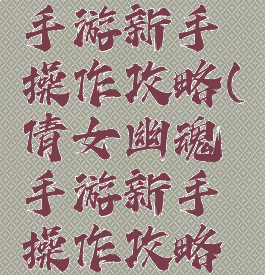 手游新手
操作攻略(
倩女幽魂
手游新手
操作攻略